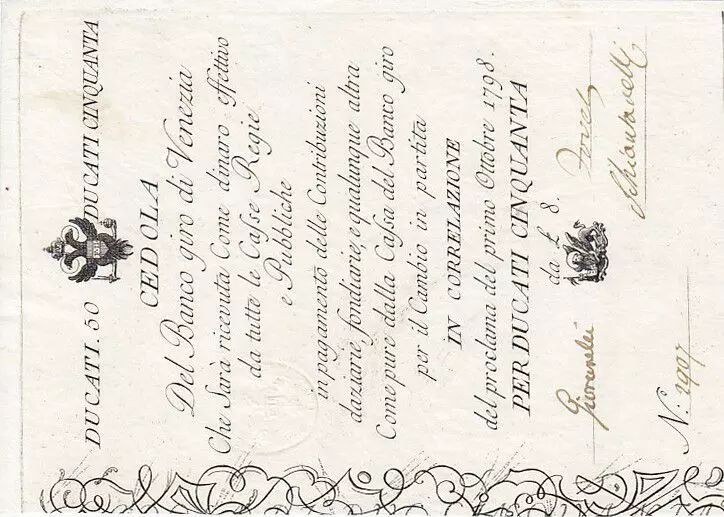 DUCATI. 50 DUCATI CINQUANTA
CEDOLA
Del Banco giro di Venezia
Che Sarà ricevuta Come dinaro effettivo
da tutte le Casse Regie
e Pubbliche
in pagamento delle Contribuzioni
daziarie, fondiarie, e qualunque altra
Come pure dalla Cassa del Banco giro
per il Cambio in partita
IN CORRELAZIONE
del proclama del primo Ottobre 1798.
PER DUCATI CINQUANTA
da £ 8.
N.º 2997